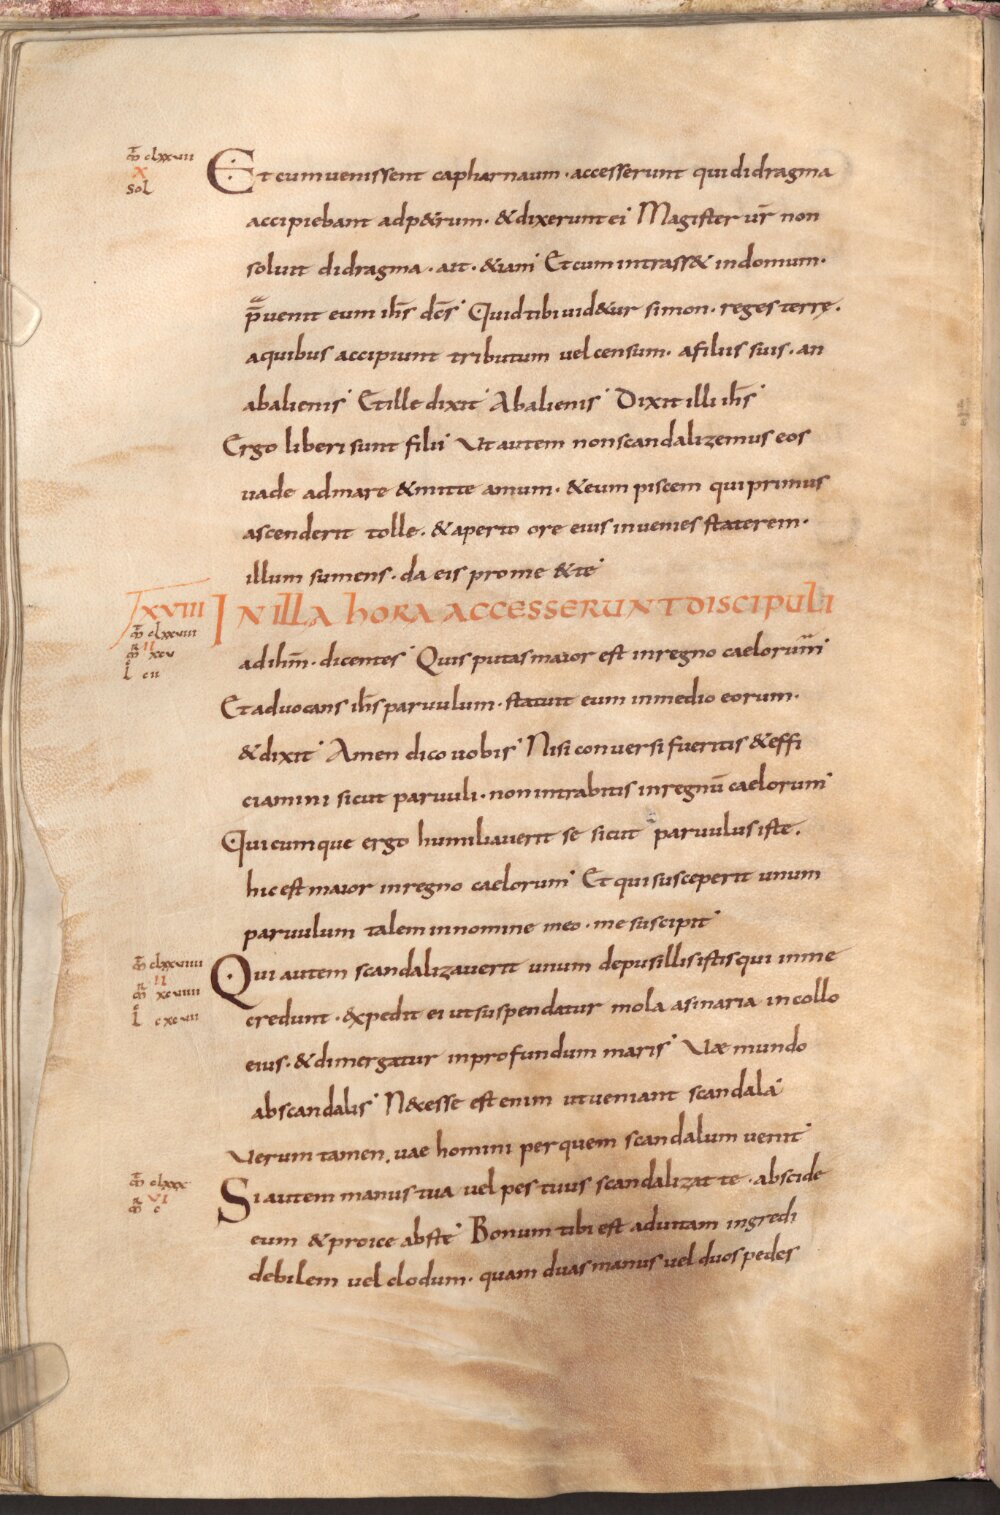 m̄ clxxvii
X
sol
Et cum uenissent capharnaum · accesserunt qui didragma
accipiebant ad p&rum · & dixerunt ei Magister ur̄ non
soluit didragma · ait · &iam Et cum intrass& in domum ·
p̄uenit eum ih̄s dc̄s Quid tibi uid&ur simon · reges terrę ·
a quibus accipiunt tributum uel censum · a filiis suis · an
ab alienis Et ille dixit Ab alienis Dixit illi ih̄s
Ergo liberi sunt filii Ut autem non scandalizemus eos
uade ad mare & mitte amum · & eum piscem qui primus
ascenderit tolle · & aperto ore eius inuenies staterem ·
illum sumens · da eis pro me & te
XVIII IN ILLA HORA ACCESSERUNT DISCIPULI
m̄ clxxviii
II
m̄ xcv
l cii
ad ih̄m · dicentes Quis putas maior est in regno caelorum
Et aduocans ih̄s paruulum · statuit eum in medio eorum ·
& dixit Amen dico uobis Nisi conuersi fueritis & effi
ciamini sicut paruuli · non intrabitis in regnū caelorum
Quicumque ergo humiliauerit se sicut paruulus iste ·
hic est maior in regno caelorum Et qui susceperit unum
paruulum talem in nomine meo · me suscipit
m̄ clxxviiii
II
m̄ xcviiii
l cxcvii
Qui autem scandalizauerit unum de pusillis istis qui in me
credunt · expedit ei ut suspendatur mola asinaria in collo
eius · & dimergatur in profundum maris Uae mundo
ab scandalis N&esse est enim ut ueniant scandala
Uerum tamen, uae homini per quem scandalum uenit
m̄ clxxx
VI
m̄ c
Si autem manus tua uel pes tuus scandalizat te · abscide
eum & proice abs te Bonum tibi est ad uitam ingredi
debilem uel clodum · quam duas manus uel duos pedes